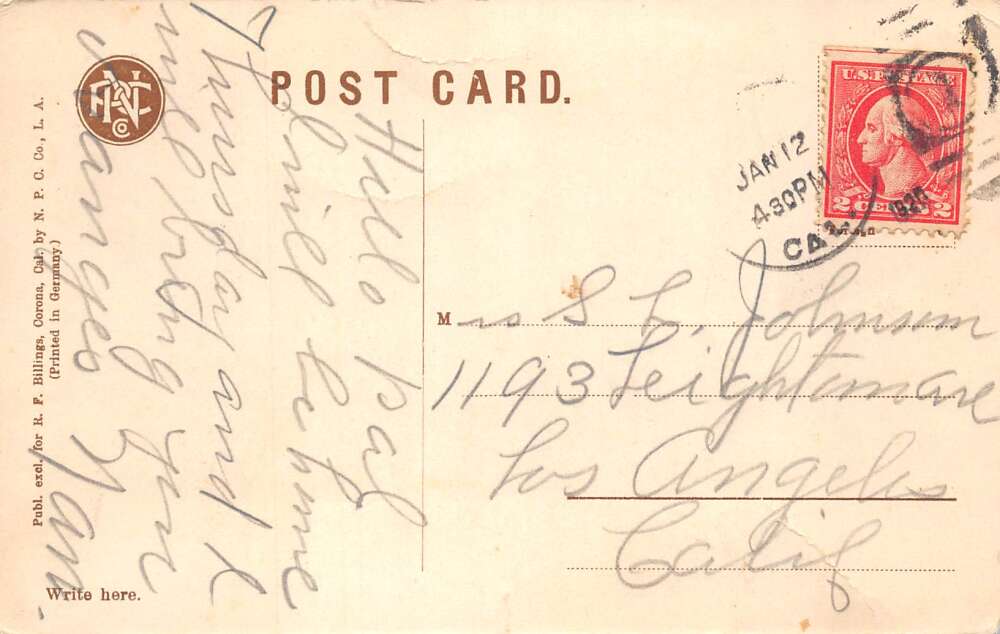 POST CARD.
NPCCo
Publ. excl. for R. F. Billings, Corona, Cal. by N. P. C. Co., L. A.
(Printed in Germany)
Write here.
Hello pal
will be home
Thursday and I
will bring you
oranges
U.S. POSTAGE
2 CENTS 2
JAN 12
4 30 PM
1920
CAL.
Mrs S. L. Johnson
1193 Leightonare
Los Angeles
Calif